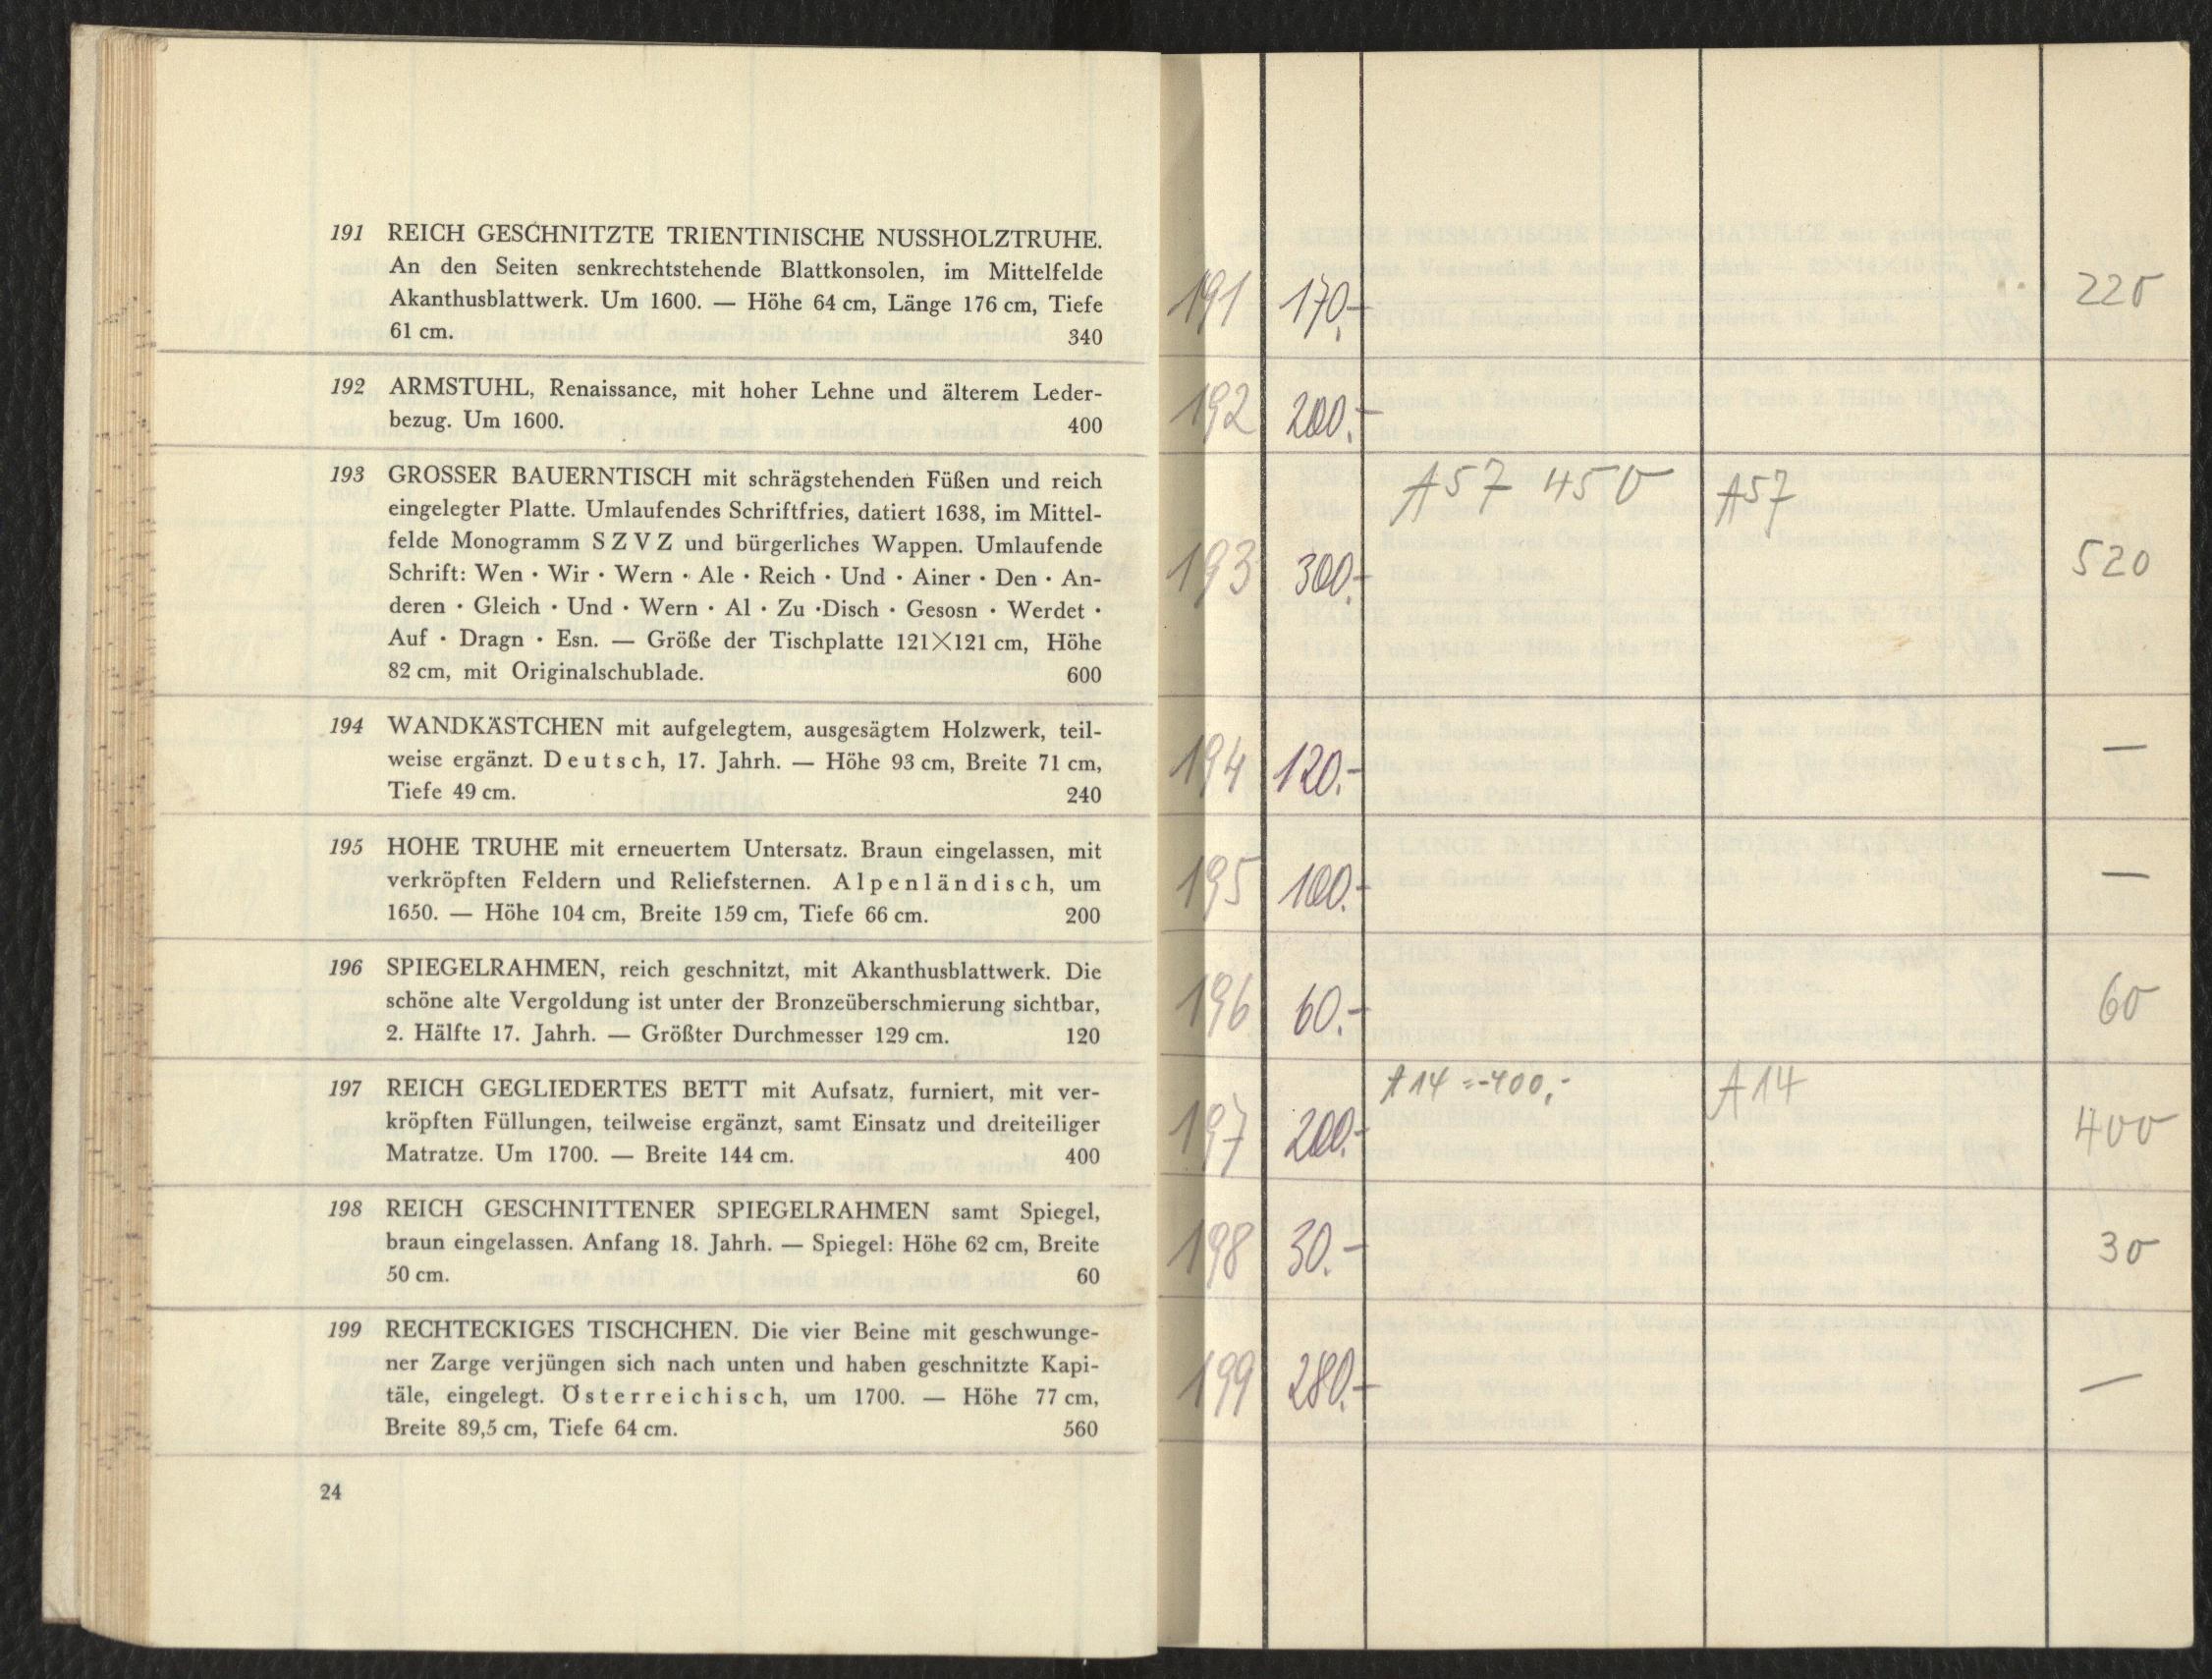 191 REICH GESCHNITZTE TRIENTINISCHE NUSSHOLZTRUHE.
An den Seiten senkrechtstehende Blattkonsolen, im Mittelfelde
Akanthusblattwerk. Um 1600. — Höhe 64 cm, Länge 176 cm, Tiefe
61 cm. 340
192 ARMSTUHL, Renaissance, mit hoher Lehne und älterem Leder-
bezug. Um 1600. 400
193 GROSSER BAUERNTISCH mit schrägstehenden Füßen und reich
eingelegter Platte. Umlaufendes Schriftfries, datiert 1638, im Mittel-
felde Monogramm S Z V Z und bürgerliches Wappen. Umlaufende
Schrift: Wen • Wir • Wern • Ale • Reich • Und • Ainer • Den • An-
deren • Gleich • Und • Wern • Al • Zu •Disch • Gesosn • Werdet •
Auf • Dragn • Esn. — Größe der Tischplatte 121×121 cm, Höhe
82 cm, mit Originalschublade. 600
194 WANDKÄSTCHEN mit aufgelegtem, ausgesägtem Holzwerk, teil-
weise ergänzt. Deutsch, 17. Jahrh. — Höhe 93 cm, Breite 71 cm,
Tiefe 49 cm. 240
195 HOHE TRUHE mit erneuertem Untersatz. Braun eingelassen, mit
verkröpften Feldern und Reliefsternen. Alpenländisch, um
1650. — Höhe 104 cm, Breite 159 cm, Tiefe 66 cm. 200
196 SPIEGELRAHMEN, reich geschnitzt, mit Akanthusblattwerk. Die
schöne alte Vergoldung ist unter der Bronzeüberschmierung sichtbar,
2. Hälfte 17. Jahrh. — Größter Durchmesser 129 cm. 120
197 REICH GEGLIEDERTES BETT mit Aufsatz, furniert, mit ver-
kröpften Füllungen, teilweise ergänzt, samt Einsatz und dreiteiliger
Matratze. Um 1700. — Breite 144 cm. 400
198 REICH GESCHNITTENER SPIEGELRAHMEN samt Spiegel,
braun eingelassen. Anfang 18. Jahrh. — Spiegel: Höhe 62 cm, Breite
50 cm. 60
199 RECHTECKIGES TISCHCHEN. Die vier Beine mit geschwunge-
ner Zarge verjüngen sich nach unten und haben geschnitzte Kapi-
täle, eingelegt. Österreichisch, um 1700. — Höhe 77 cm,
Breite 89,5 cm, Tiefe 64 cm. 560
24
191 170.- 220
192 200.-
A57 450 A57
193 300.- 520
194 120.- —
195 100.- —
196 60.- 60
A14 =-400,- A14
197 200.- 400
198 30.- 30
199 280.- —